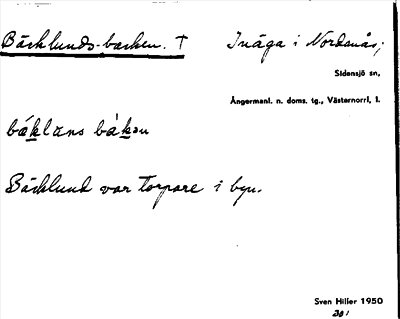 Bäcklunds-backen. † Inäga i Nordanås,
Sidensjö sn,
Ångermanl. n. doms. tg., Västernorrl. l.
báklans bákan
Bäcklund var torpare i byn.
Sven Hiller 1950
201